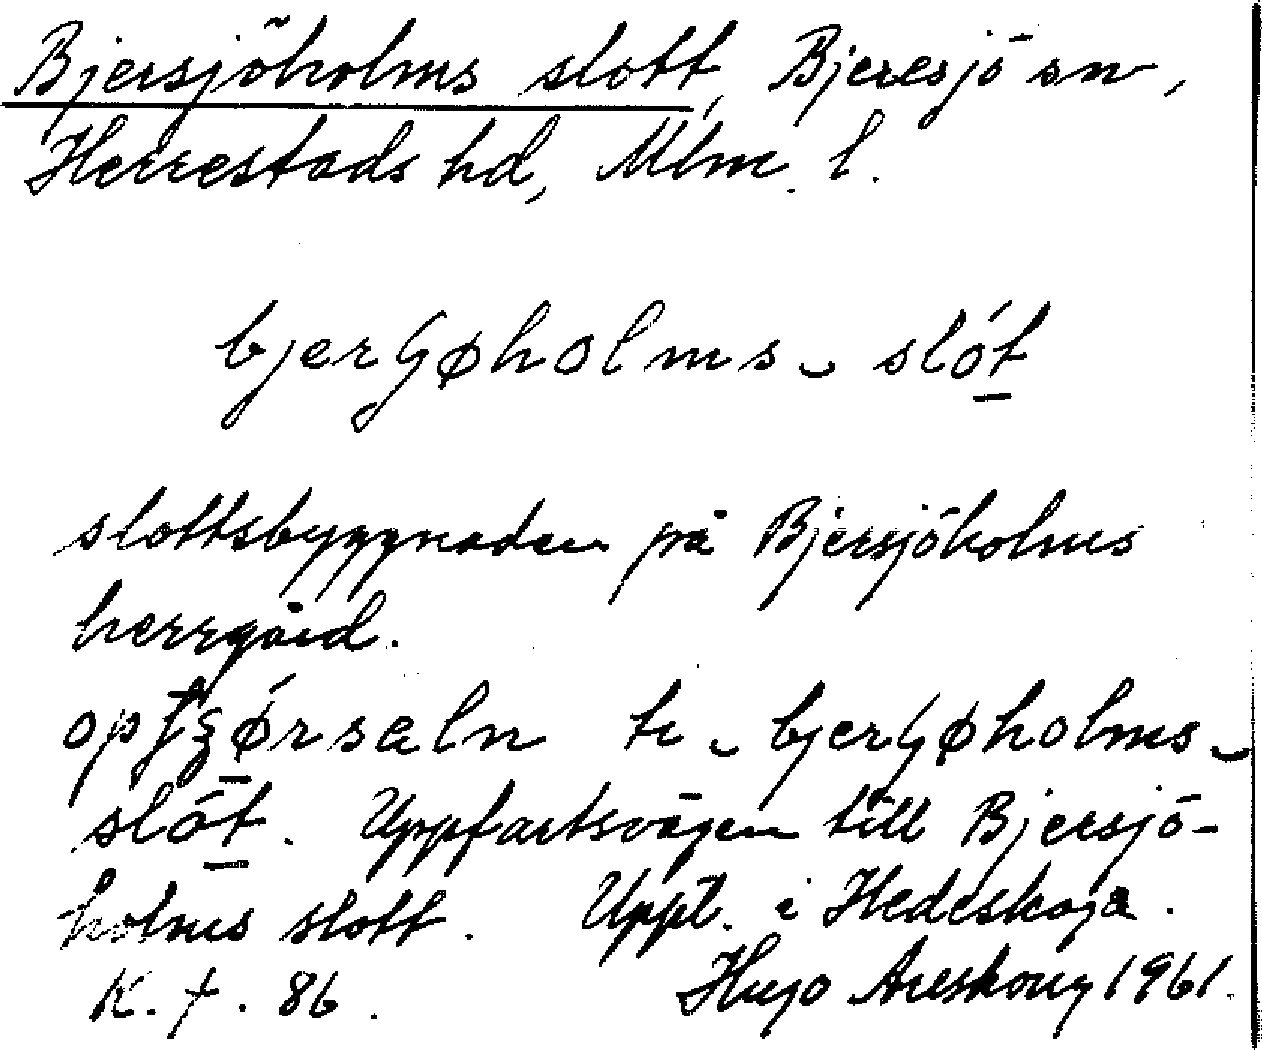 Bjersjöholms slott, Bjeresjö sn,
Herrestads hd, Mlm. l.
bjerʃøholms‿slót̲
slottsbyggnaden på Bjersjöholms
herrgård.
opfǿ̲rsæln te‿bjerʃøholms‿
slót̲. Uppfartsvägen till Bjersjö-
holms slott. Uppt. i Hedeskoga.
K. f. 86. Hugo Areskoug 1961.